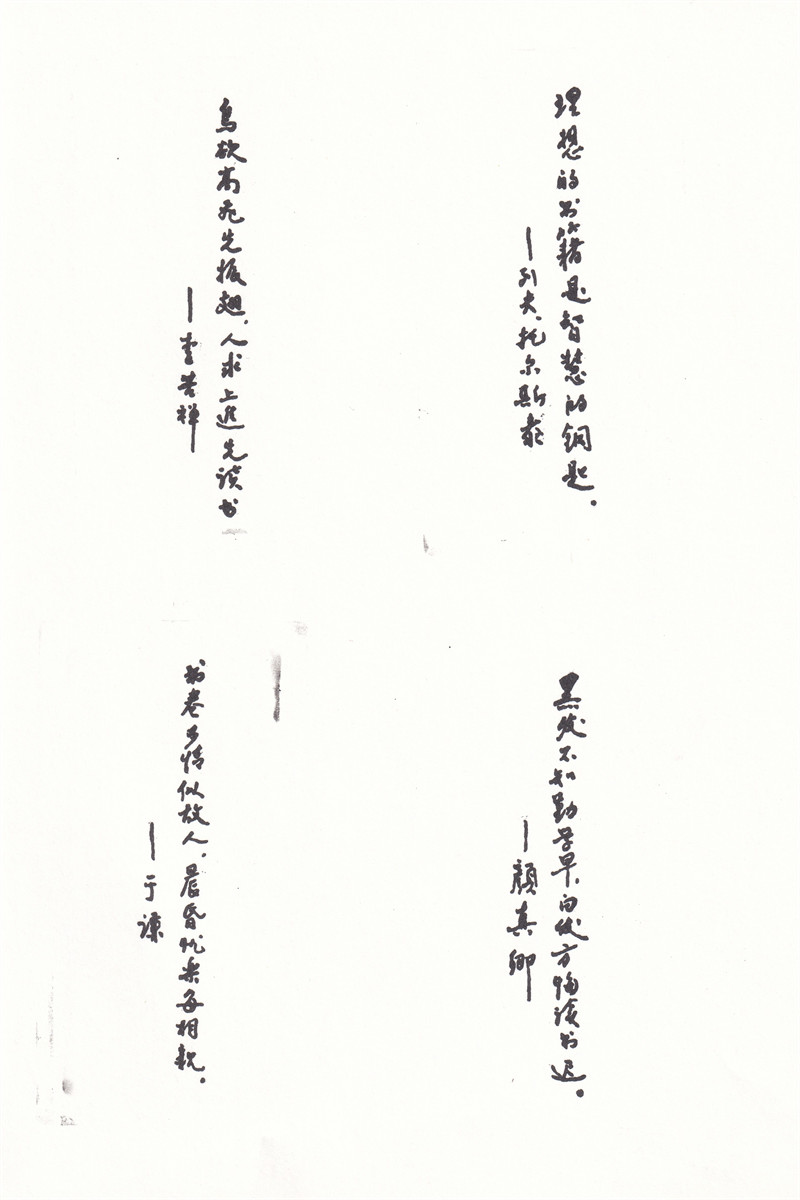 理想的书籍是智慧的钥匙。
—列夫.托尔斯泰
鸟欲高飞先振翅，人求上进先读书
—李苦禅
黑发不知勤学早，白发方悔读书迟。
—颜真卿
书卷多情似故人，晨昏忧乐每相亲。
—于谦